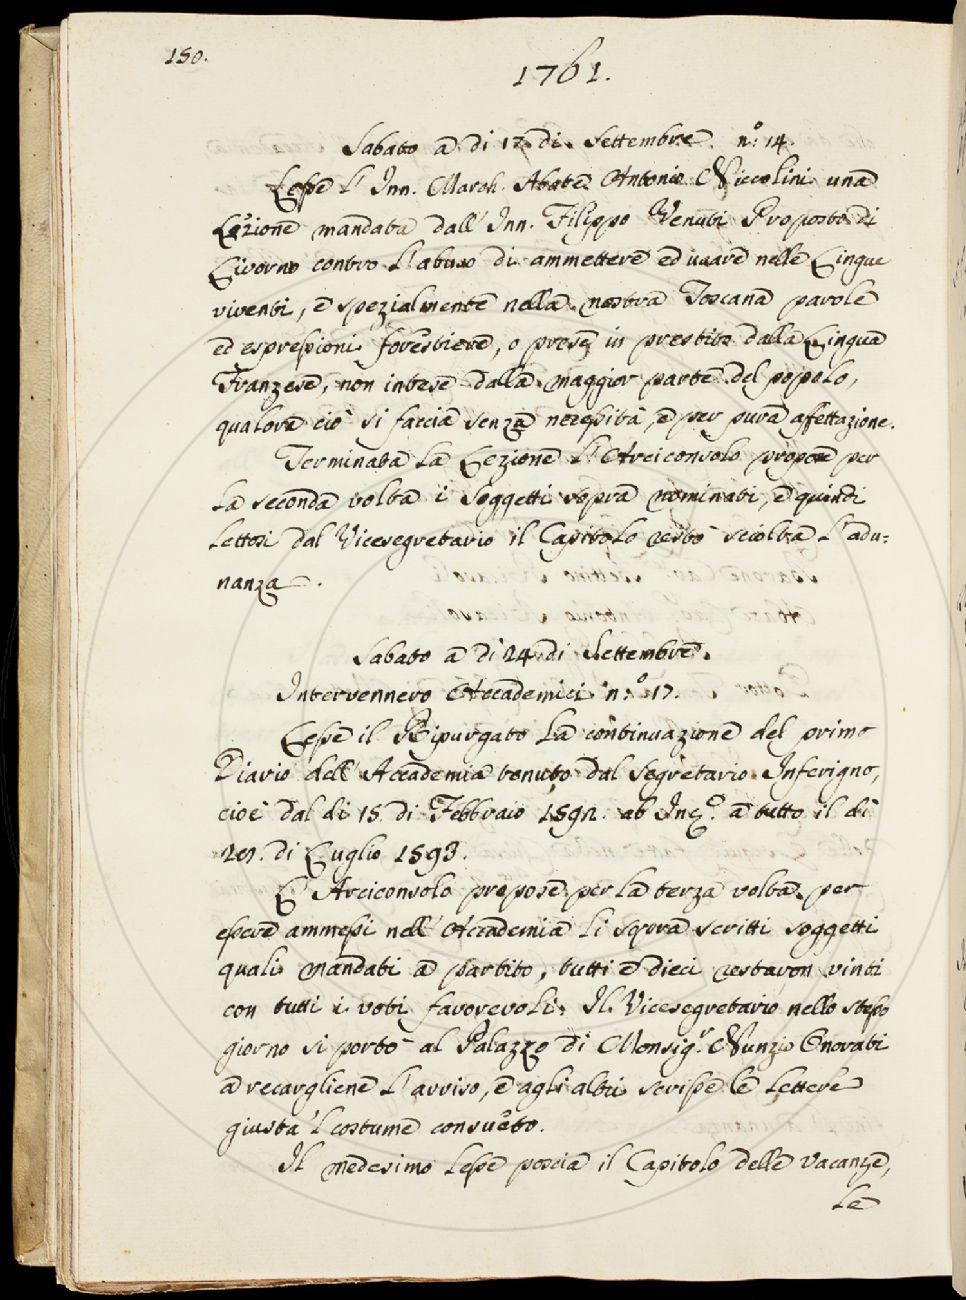 150.
1761.
Sabato a dì 12 di Settembre. n.° 14.
Lesse l'Inn. March. Abate Antonio Niccolini una
Lezione mandata dall'Inn. Filippo Venuti Proposto di
Livorno contro l'abuso di ammettere ed usare nelle Lingue
viventi, e spezialmente nella nostra Toscana parole
ed espressioni forestiere, o prese in prestito dalla Lingua
Franzese, non intese dalla maggior parte del popolo,
qualora ciò si faccia senza necessità, e per pura affettazione.
Terminata la Lezione l'Arciconsolo propose per
la seconda volta i Soggetti sopra nominati, e quindi
lettosi dal Vicesegretario il Capitolo restò sciolta l'adu=
nanza.
Sabato a dì 24 di Settembre.
Intervennero Accademici n.° 17.
Lesse il Ripurgato la continuazione del primo
Diario dell'Accademia tenuto dal Segretario Inferigno,
cioè dal dì 15 di Febbraio 1592. ab Inc.° a tutto il dì
di Luglio 1593.
L'Arciconsolo propose per la terza volta per
essere ammessi nell'Accademia li sopra scritti soggetti
quali mandati a partito, tutti e dieci restaron vinti
con tutti i voti favorevoli. Il Vicesegretario nello stesso
giorno si portò al Palazzo di Monsig.r Nunzio Onorati
a recargliene l'avviso, e agli altri scrisse le lettere
giusta 'l costume consueto.
Il medesimo lesse poscia il Capitolo delle Vacanze,
le